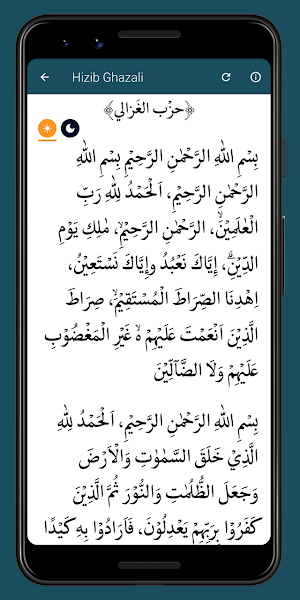 Hizib Ghazali
﴿حزْب الغَزالي﴾
بِسْمِ اللهِ الرَّحْمٰنِ الرَّحِيْمِ بِسْمِ اللهِ
الرَّحْمٰنِ الرَّحِيْمِ، اَلْحَمْدُ لِلّٰهِ رَبِّ
الْعٰلَمِيْنَۙ، الرَّحْمٰنِ الرَّحِيْمِۙ، مٰلِكِ يَوْمِ
الدِّيْنِۗ، اِيَّاكَ نَعْبُدُ وَاِيَّاكَ نَسْتَعِيْنُۗ،
اِهْدِنَا الصِّرَاطَ الْمُسْتَقِيْمَۙ، صِرَاطَ
الَّذِيْنَ اَنْعَمْتَ عَلَيْهِمْ ەۙ غَيْرِ الْمَغْضُوْبِ
عَلَيْهِمْ وَلَا الضَّاۤلِّيْنَ
بِسْمِ اللهِ الرَّحْمٰنِ الرَّحِيْمِ، اَلْحَمْدُ لِلّٰهِ
الَّذِيْ خَلَقَ السَّمٰوٰتِ وَالْاَرْضَ
وَجَعَلَ الظُّلُمٰتِ وَالنُّوْرَ ثُمَّ الَّذِيْنَ
كَفَرُوْا بِرَبِّهِمْ يَعْدِلُوْنَ، فَاَرَادُوْا بِهِ كَيْدًا